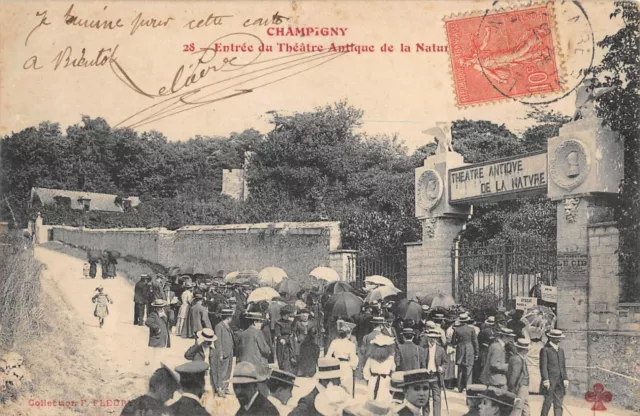 CHAMPIGNY
Je termine pour cette carte
28 - Entrée du Théâtre Antique de la Natur
à Bientôt
THÉATRE ANTIQVE
DE LA NATVRE
10
Collection P. FLEURY